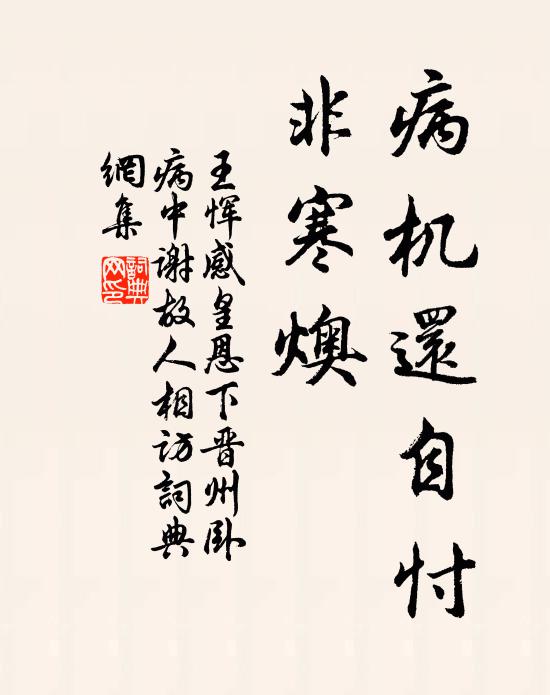 病机還自忖
非寒燠
王恽感皇恩下晋州卧
病中谢故人相访詞典
網集
詞典
网印